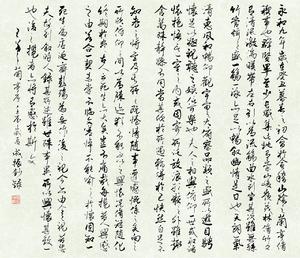 永和九年歲在癸丑暮春之初會於會稽山陰之蘭亭
修禊事也群賢畢至少長咸集此地有崇山峻嶺茂林修竹又
有清流激湍映帶左右引以為流觴曲水列坐其次雖無絲
竹管弦之盛一觴一詠亦足以暢敘幽情是日也天朗氣
清惠風和暢仰觀宇宙之大俯察品類之盛所以遊目騁
懷足以極視聽之娛信可樂也夫人之相與俯仰一世或取諸
懷抱悟言一室之內或因寄所託放浪形骸之外雖趣
舍萬殊靜躁不同當其欣於所遇暫得於己快然自足不
知老之將至及其所之既倦情隨事遷感慨係之矣向之
所欣俯仰之間已為陳跡猶不能不以之興懷況修短隨化
終期於盡古人云死生亦大矣豈不痛哉每攬昔人興感
之由若合一契未嘗不臨文嗟悼不能喻之於懷固知一
死生為虛誕齊彭殤為妄作後之視今亦由今之視昔悲
夫故列敘時人錄其所述雖世殊事異所以興懷其致一
也後之攬者亦將有感於斯文
王羲之蘭亭序